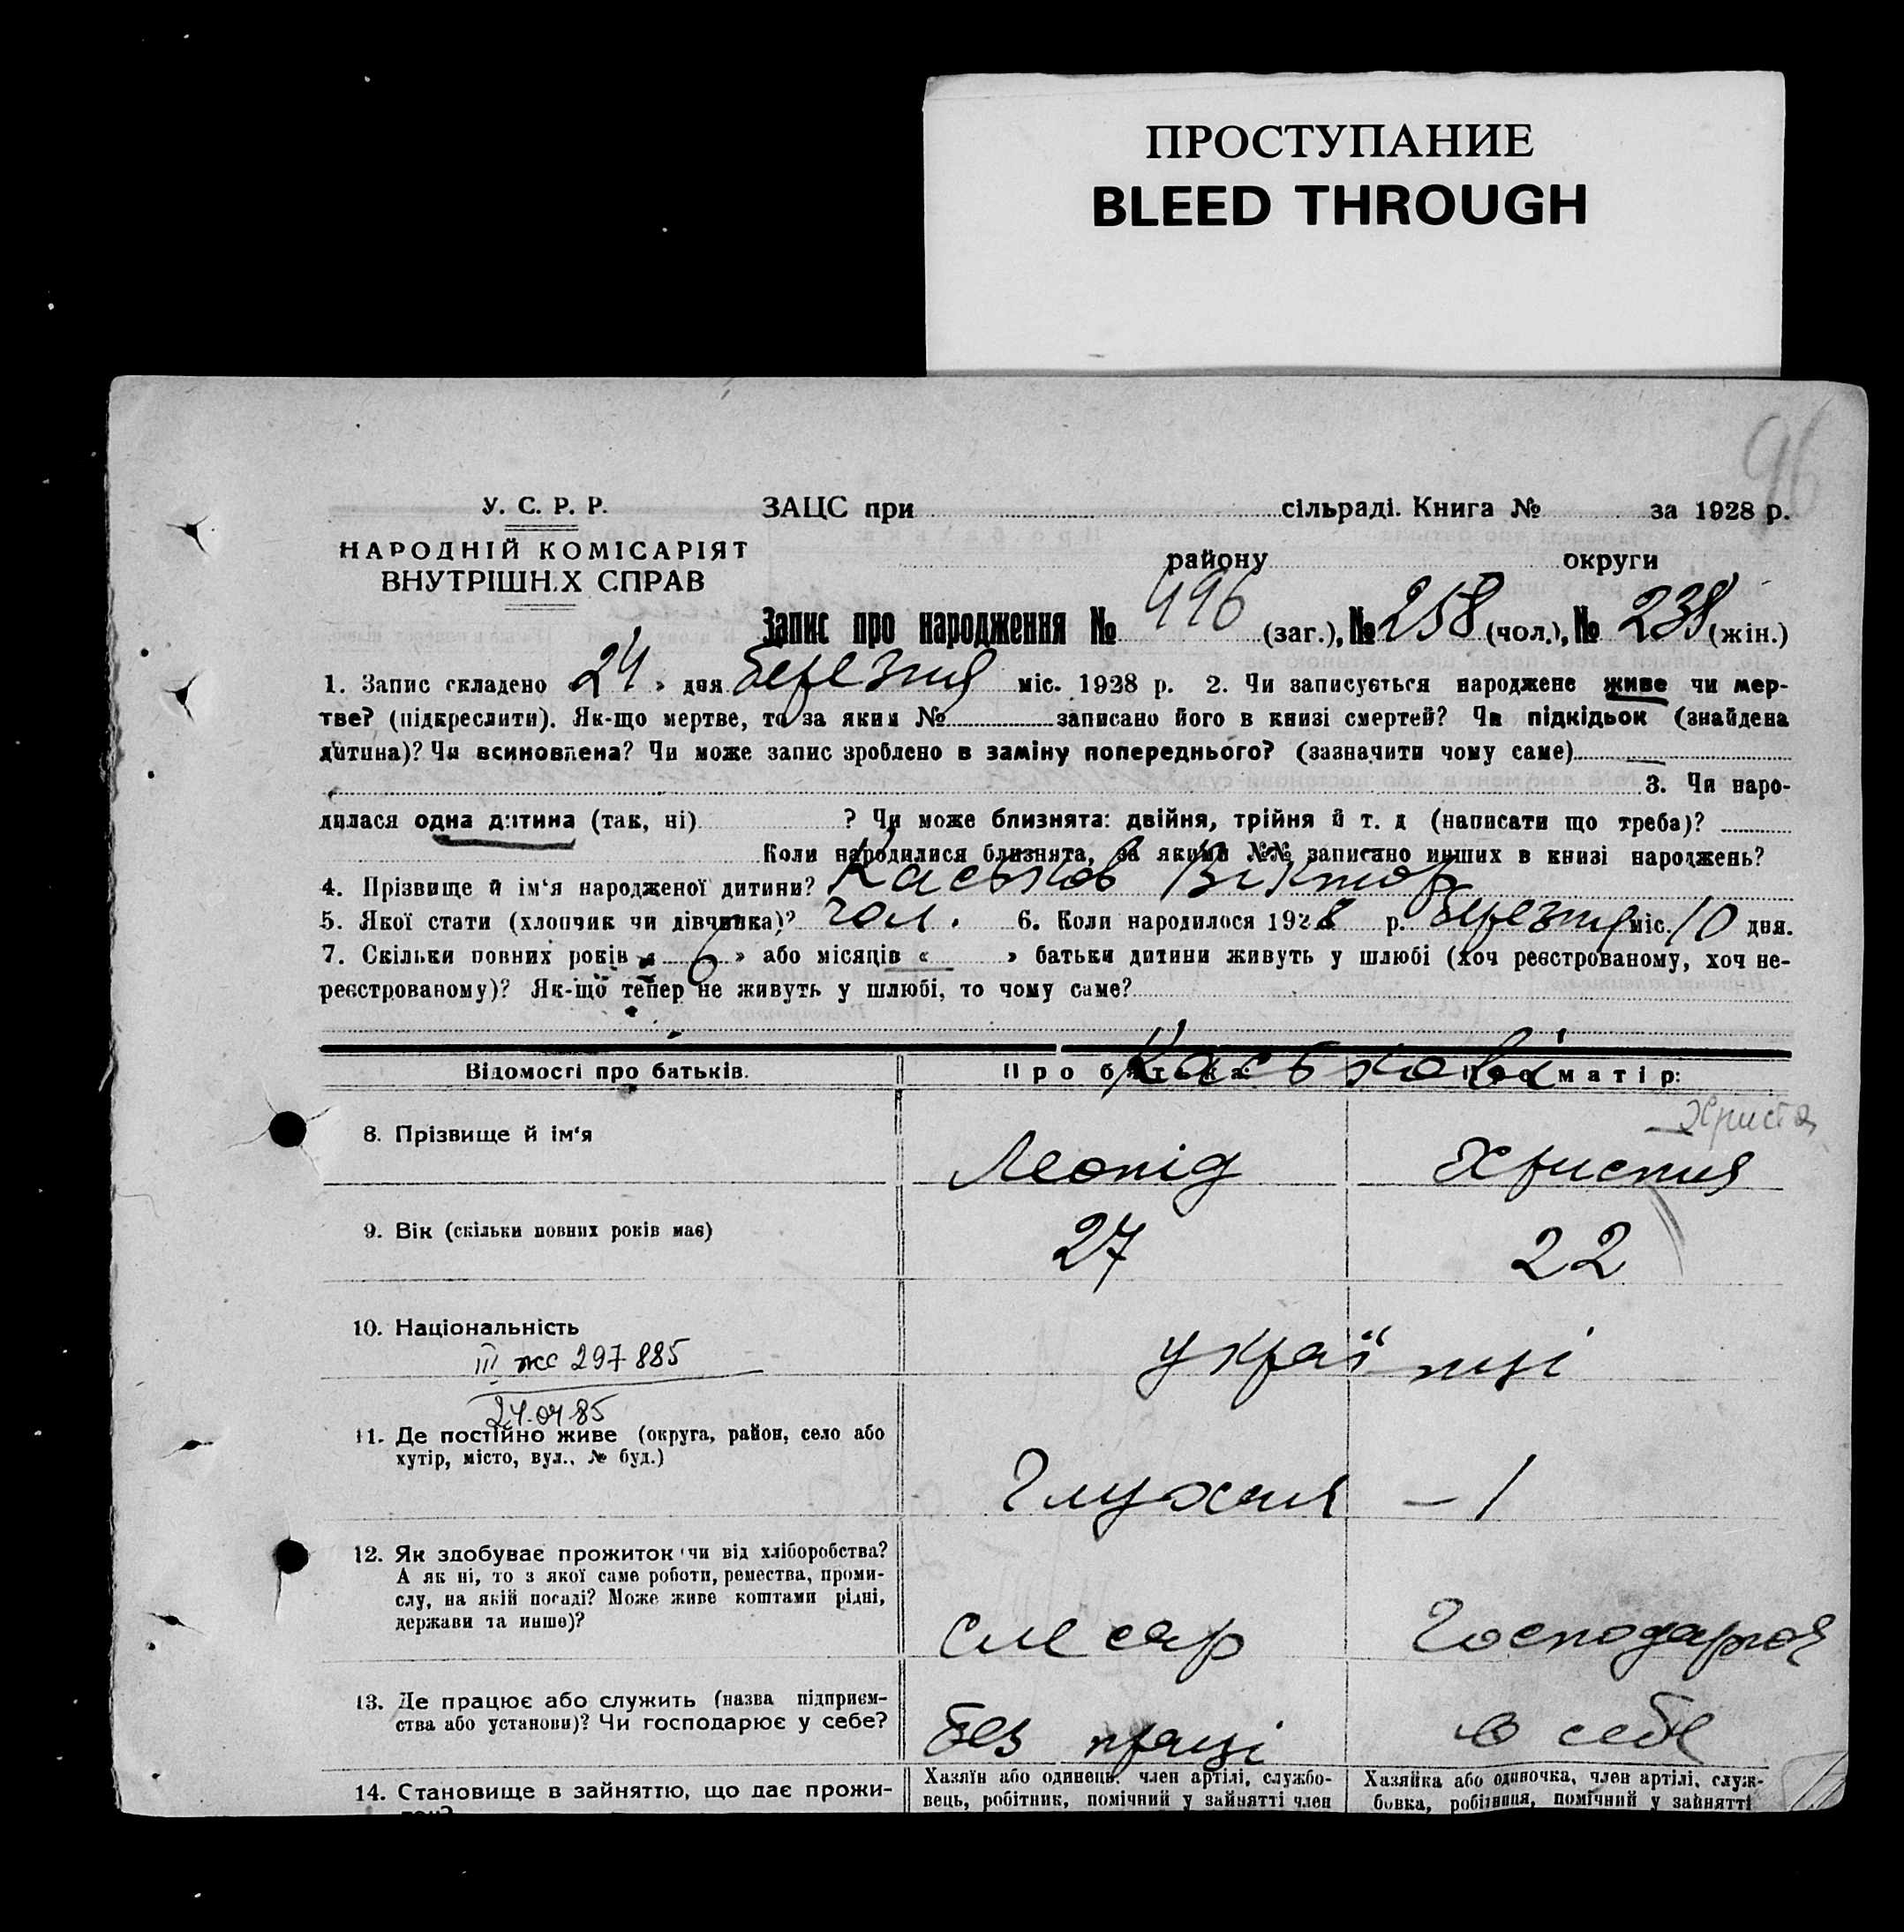 ПРОСТУПАНИЕ
BLEED THROUGH
96
У. С. Р. Р.
НАРОДНІЙ КОМІСАРІЯТ
ВНУТРІШН.Х СПРАВ
ЗАЦС при сільраді. Книга № за 1928 р.
району округи
Запис про народження № 496 (заг.), № 258 (чол.), № 238 (жін.)
1. Запис складено 24 » дня березня міс. 1928 р. 2. Чи записується народжене живе чи мер-
тве? (підкреслити). Як-що мертве, то за яким № записано його в книзі смертей? Чи підкідьок (знайдена
дитина)? Чи всиновлена? Чи може запис зроблено в заміну попереднього? (зазначити чому саме)
3. Чи наро-
дилася одна дитина (так, ні) ? Чи може близнята: двійня, трійня й т. д (написати що треба)?
Коли народилися близнята, за якими №№ записано инших в книзі народжень?
4. Прізвище й ім'я народженої дитини? Каськов Віктор
5. Якої стати (хлопчик чи дівчинка)? чол. 6. Коли народилося 1928 р. березня міс. 10 дня.
7. Скільки повних років « 6 » або місяців « » батьки дитини живуть у шлюбі (хоч реєстрованому, хоч не-
реєстрованому)? Як-що тепер не живуть у шлюбі, то чому саме?
Відомості про батьків. Про батька: Про матір:
Каськові
Христя
8. Прізвище й ім'я Леонід Христия
9. Вік (скільки повних років має) 27 22
10. Національність українці
III жс 297885
24.04.85
11. Де постійно живе (округа, район, село або
хутір, місто, вул., № буд.)
– 1
12. Як здобуває прожиток чи від хліборобства?
А як ні, то з якої саме роботи, ремества, проми-
слу, на якій посаді? Може живе коштами рідні,
держави та инше)?
слесар Господарка
13. Де працює або служить (назва підприєм-
ства або установи)? Чи господарює у себе?
без праці в себе
14. Становище в зайняттю, що дає прожи-
Хазяїн або одинець, член артілі, службо-
вець, робітник, помічний у зайнятті член
Хазяйка або одиночка, член артілі, служ-
бовка, робітниця, помічний у зайнятті